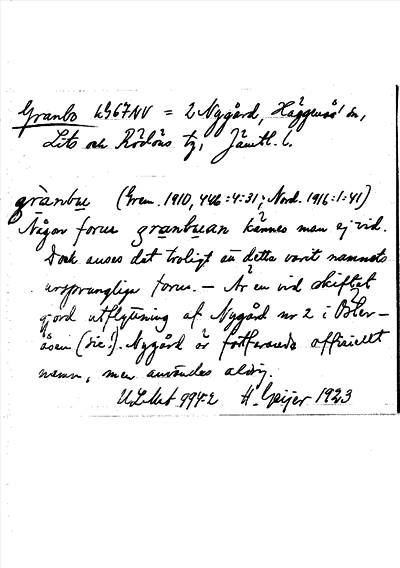 Granbo k967NV = 2 Nygård, Häggenås sn,
Lits och Rödöns tg, Jämtl. l.
grànbu (Grem. 1910, 446:4:31; Nord. 1916:1:41)
Någon form granbuan kännes man ej vid.
Dock anses det troligt att detta varit namnets
ursprungliga form. – Är en vid skiftet
gjord utflyttning af Nygård nr 2 i Öster-
åsen (sic!). Nygård är fortfarande officiellt
namn, men användes aldrig.
ULMA 994:2 H. Geijer 1923